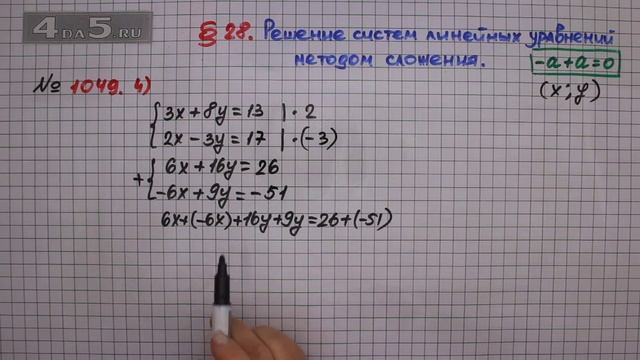 4DA5.RU
§ 28. Решение систем линейных уравнений
методом сложения.
-a+a=0
№ 1049. 4)
(x; y)
3x+8y=13 | · 2
2x-3y=17 | · (-3)
6x+16y=26
+
-6x+9y=-51
6x+(-6x)+16y+9y=26+(-51)